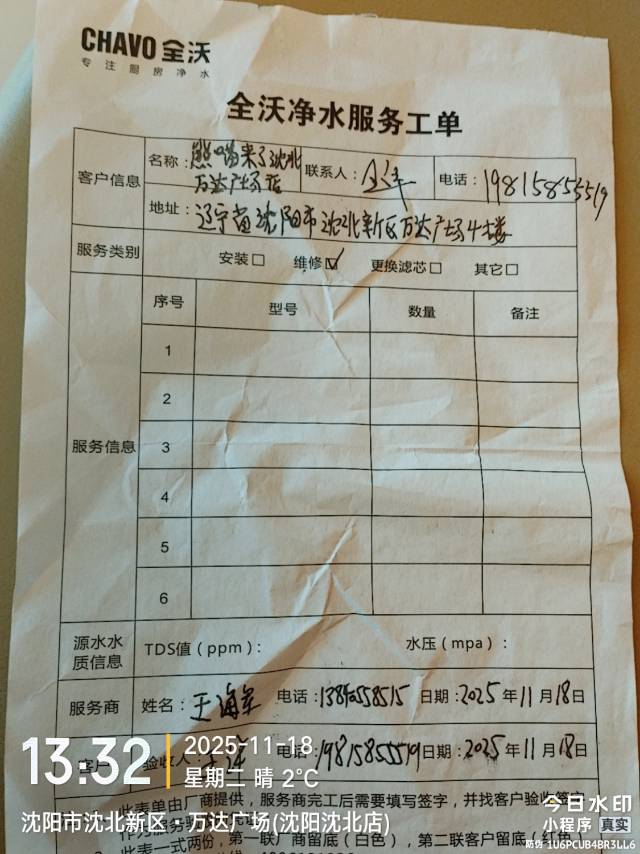 CHAVO 全沃
专注厨房净水
全沃净水服务工单
客户信息
名称：熊喵来了沈北
万达广场店
联系人：
电话：19815855519
地址：辽宁省沈阳市沈北新区万达广场4楼
服务类别
安装□ 维修☑ 更换滤芯□ 其它□
服务信息
序号 型号 数量 备注
1
2
3
4
5
6
源水水
质信息
TDS值（ppm）： 水压（mpa）：
服务商 姓名：王海军 电话： 日期：2025年11月18日
客户 验收人： 电话：19815855519 日期：2025年11月18日
此表单由厂商提供，服务商完工后需要填写签字，并找客户验收签字
作为服务
此表一式两份，第一联厂商留底（白色），第二联客户留底（红色
13.32
2025-11-18
星期二 晴 2℃
沈阳市沈北新区·万达广场(沈阳沈北店)
今日水印
小程序 真实
防伪 1U6PCUB4BR3LL6